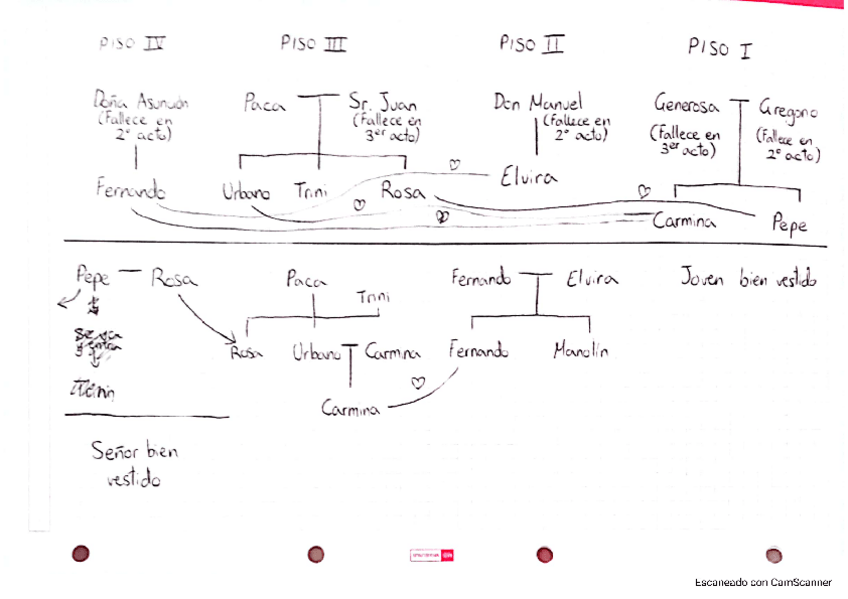 PISO IV PISO III PISO II PISO I
Doña Asunción Paca Sr. Juan Don Manuel Generosa Gregorio
(Fallece en (Fallece en (Fallece en (Fallece en (Fallece en
2º acto) 3er acto) 2º acto) 3er acto) 2º acto)
Fernando Urbano Trini Rosa Elvira Carmina Pepe
Pepe Rosa Paca Trini Fernando Elvira Joven bien vestido
Rosa Urbano Carmina Fernando Manolín
Carmina
Señor bien
vestido
Escaneado con CamScanner